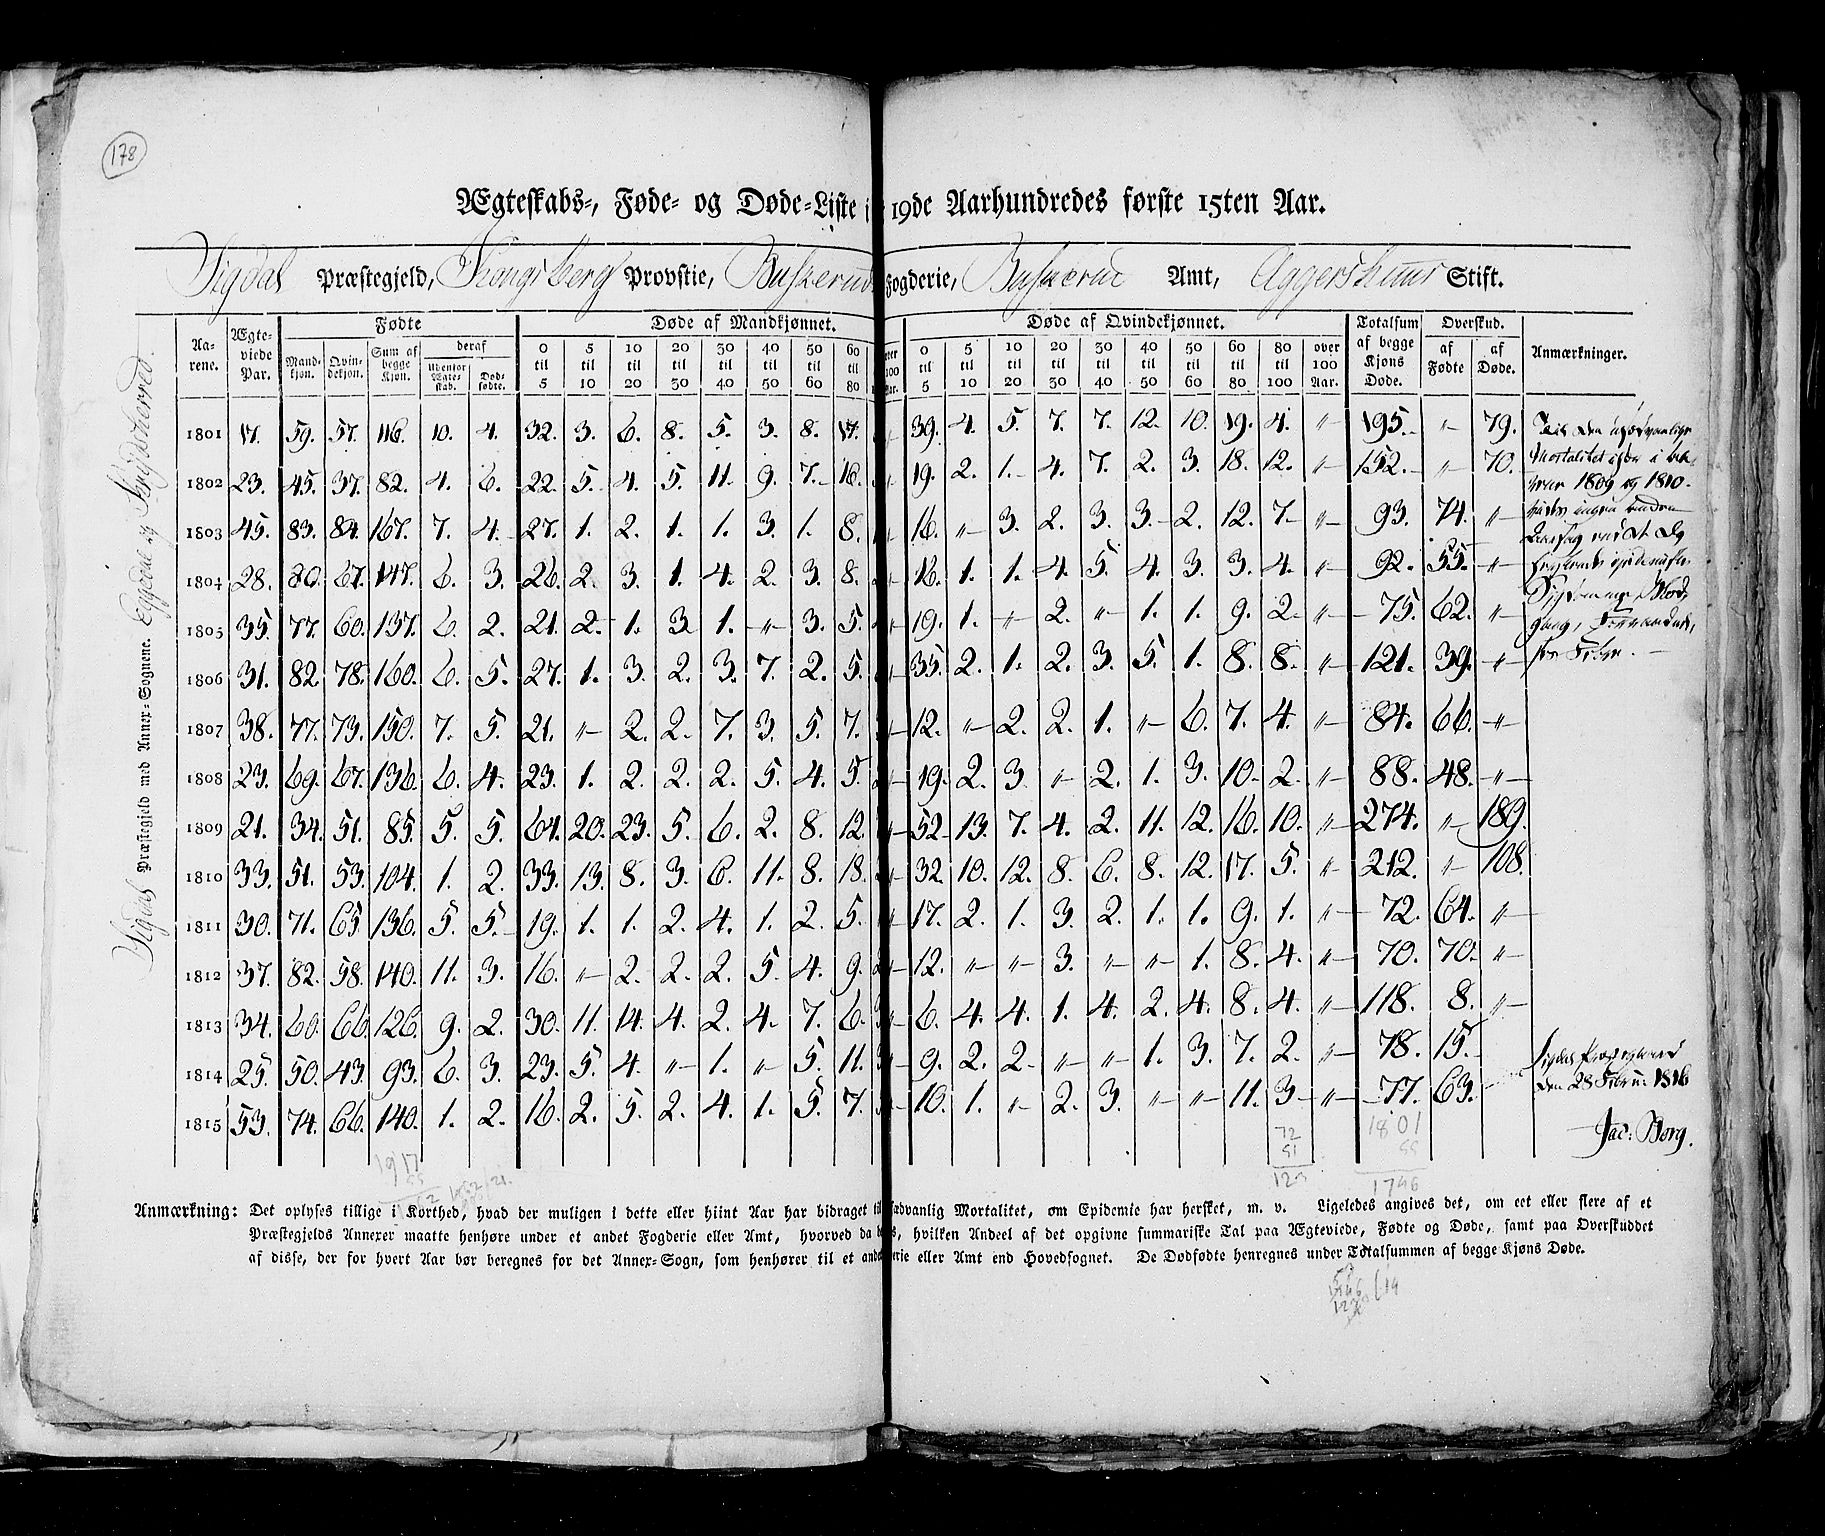 178
Ægteskabs-, Føde- og Døde-Liste i 19de Aarhundredes første 15ten Aar.
Sigdal Præstegjeld, Kongsberg Provstie, Buskerud Fogderie, Buskerud Amt, Aggershuus Stift.
Sigdal Præstegjeld med Annex-Sognene. Eggedal og
Aarene. Ægteviede Par. Fødte Døde af Mandkjønnet. Døde af Qvindekjønnet. Totalsum af begge Kjøns Døde. Overskud. Anmærkninger.
Mandkjøn. Qvindekjøn. Sum af begge Kjøn. deraf Udenfor Ægteskab. Dødfødte. 0 til 5 5 til 10 10 til 20 20 til 30 30 til 40 40 til 50 50 til 60 60 til 80 0 til 5 5 til 10 10 til 20 20 til 30 30 til 40 40 til 50 50 til 60 60 til 80 80 til 100 over 100 Aar. af Fødte af Døde.
1801 17. 59. 57. 116. 10. 4. 32. 3. 6. 8. 5. 3. 8. 17. 39. 4. 5. 7. 7. 12. 10. 19. 4. " 195. " 79.
1802 23. 45. 37. 82. 4. 6. 22. 5. 4. 5. 11. 9. 7. 16. 19. 2. 1. 4. 7. 2. 3. 18. 12. " 152. " 70. Mortalitet
1809 og 1810.
1803 45. 83. 84. 167. 7. 4. 27. 1. 2. 1. 1. 3. 1. 8. 16. " 3. 2. 3. 3. 2. 12. 7. " 93. 74. "
1804 28. 80. 67. 147. 6. 3. 26. 2. 3. 1. 4. 2. 3. 8. 16. 1. 1. 4. 5. 4. 3. 3. 4. " 92. 55. "
1805 35. 77. 60. 137. 6. 2. 21. 2. 1. 3. 1. " 3. 5. 19. 1. " 2. " 1. 1. 9. 2. " 75. 62. "
1806 31. 82. 78. 160. 6. 5. 27. 1. 3. 2. 3. 7. 2. 5. 35. 2. 1. 2. 3. 5. 1. 8. 8. " 121. 39. "
1807 38. 77. 73. 150. 7. 5. 21. " 2. 2. 7. 3. 5. 7. 12. " 2. 2. 1. " 6. 7. 4. " 84. 66. "
1808 23. 69. 67. 136. 6. 4. 23. 1. 2. 2. 2. 5. 4. 5. 19. 2. 3. " 2. 1. 3. 10. 2. " 88. 48. "
1809 21. 34. 51. 85. 5. 5. 64. 20. 23. 5. 6. 2. 8. 12. 52. 13. 7. 4. 2. 11. 12. 16. 10. " 274. " 189.
1810 33. 51. 53. 104. 1. 2. 33. 13. 8. 3. 6. 11. 8. 18. 32. 10. 12. 8. 6. 8. 12. 17. 5. " 212. " 108.
1811 30. 71. 65. 136. 5. 5. 19. 1. 1. 2. 4. 1. 2. 5. 17. 2. 1. 3. 2. 1. 1. 9. 1. " 72. 64. "
1812 37. 82. 58. 140. 11. 3. 16. " 2. 2. 2. 5. 4. 9. 12. " " 3. " " 1. 8. 4. " 70. 70. "
1813 34. 60. 66. 126. 9. 2. 30. 11. 14. 4. 2. 4. 7. 6. 6. 4. 4. 1. 4. 2. 4. 8. 4. " 118. 8. "
1814 25. 50. 43. 93. 6. 3. 23. 5. 4. " 1. " 5. 11. 9. 2. 2. " " 1. 3. 7. 2. " 78. 15.
1815 53. 74. 66. 140. 1. 2. 16. 2. 5. 2. 4. 1. 5. 7. 10. 1. " 2. 3. " " 11. 3. " 77. 63.
Sigdals Præstegaard
den 28 Febru: 1816
Jac: Borg.
1917
55
72
51
123
1801
55
1746
Anmærkning: Det oplyses tillige i Korthed, hvad der muligen i dette eller hiint Aar har bidraget til sædvanlig Mortalitet, om Epidemie har hersket, m. v. Ligeledes angives det, om eet eller flere af et
Præstegjelds Annexer maatte henhøre under et andet Fogderie eller Amt, hvorved da hvilken Andeel af det opgivne summariske Tal paa Ægteviede, Fødte og Døde, samt paa Overskuddet
af disse, der for hvert Aar bør beregnes for det Annex-Sogn, som henhører til et eller Amt end Hovedsognet. De Dødfødte henregnes under Totalsummen af begge Kjøns Døde.